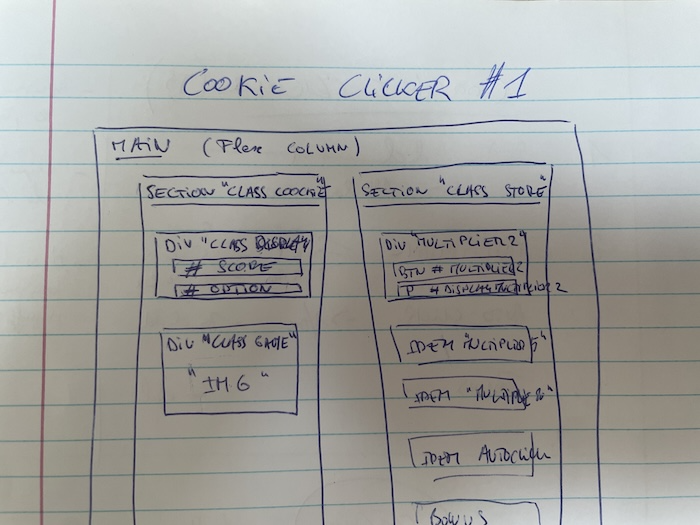 COOKIE CLICKER #1
MAIN (Flex COLUMN)
SECTION "CLASS COOKIE"
Div "CLASS DISPLAY"
# SCORE
# OPTION
Div "CLASS GAME"
"IMG"
SECTION "CLASS STORE"
Div "MULTIPLIER2"
BTN # MULTIPLIER2
P # DISPLAYMULTIPLIER2
IDEM "MULTIPLIER5"
IDEM
IDEM AUTOCLICK
BONUS